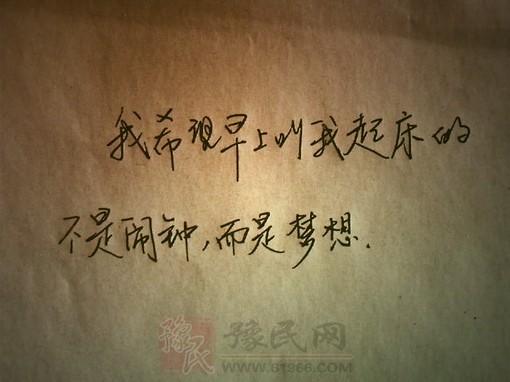 我希望早上叫我起床的
不是闹钟,而是梦想.
豫民
豫民网
www.61966.com